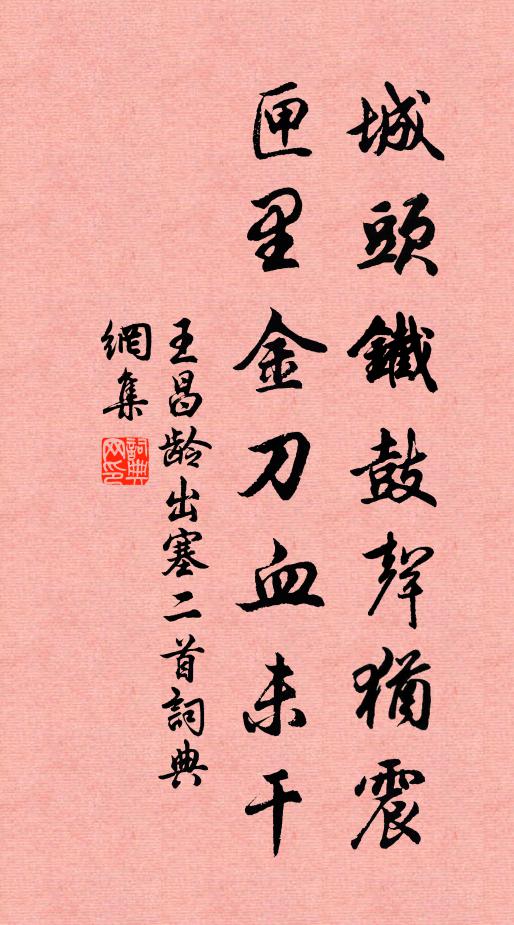 城頭鐵鼓聲猶震
匣里金刀血未干
王昌龄出塞二首詞典
網集
詞典
网印